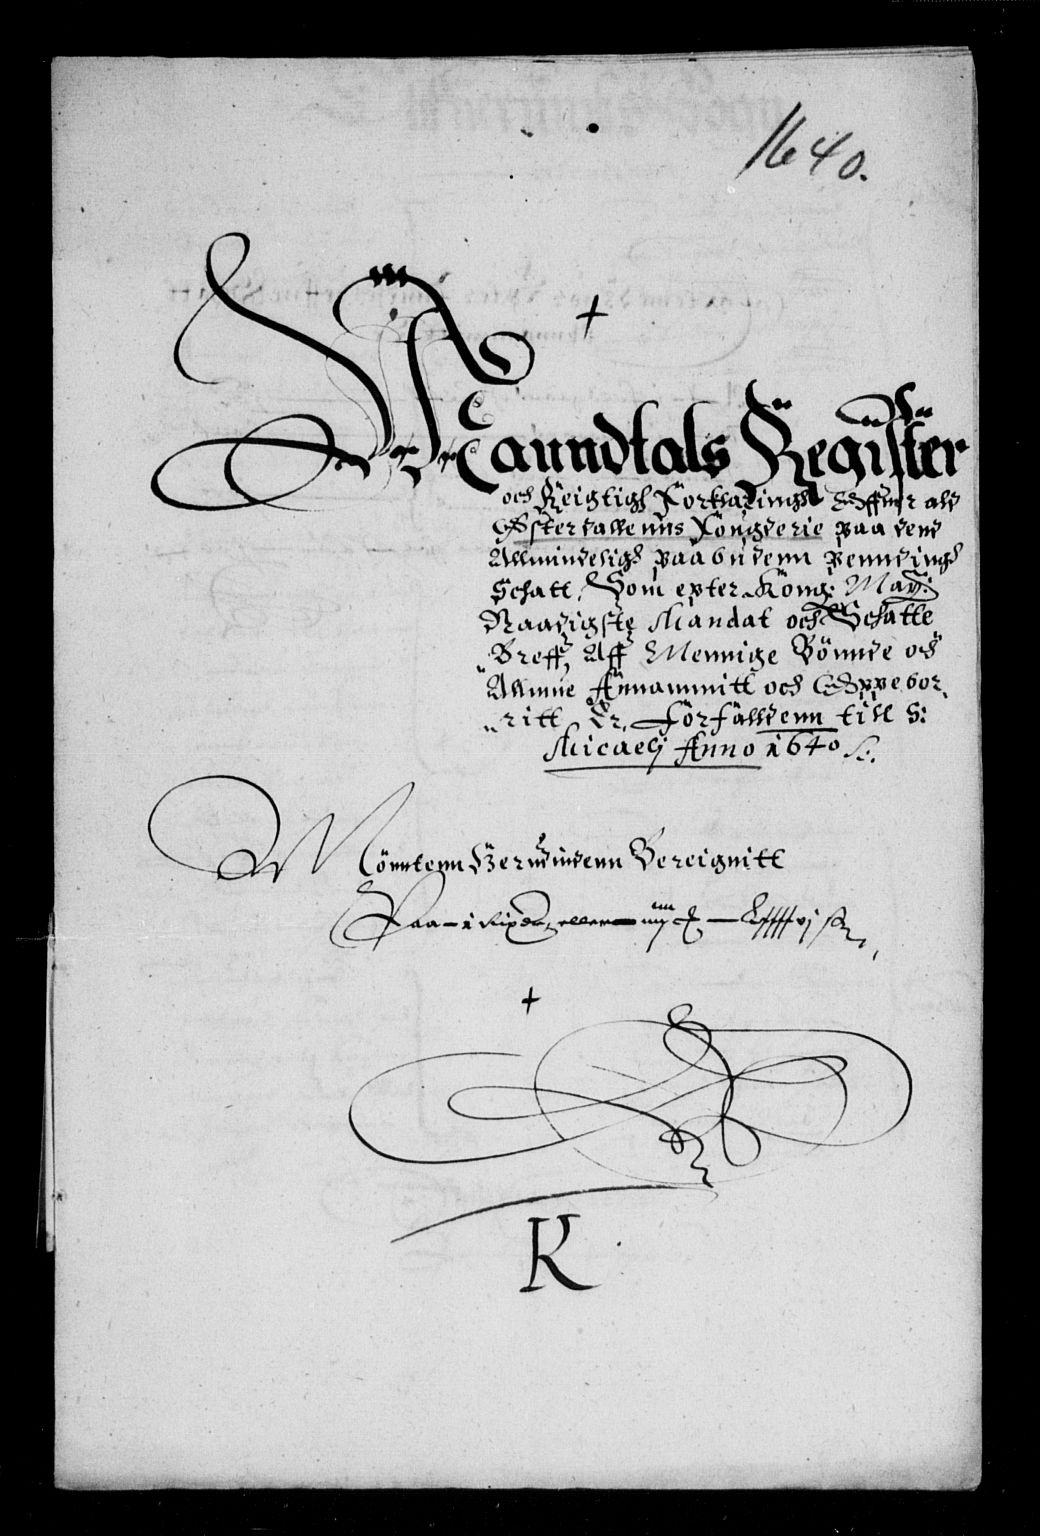 1640.
Maundtals Register
och Reigtigh Forklaringh Offuer ald
Østerdallenns Fougderie paa dend
Allmindelige paabudenn Pennding
Schatt, Som epter Köng: May:
Naadigste Mandat och Schatte
Breff, Aff Mennige Bönnde och
Allmue Annammitt och Oppebor„
„ritt Er, Forfalldenn till S:
Micaelj Anno 1640
Mönntenn Herudindenn Bereignitt
Paa 1 Rixdr eller
K